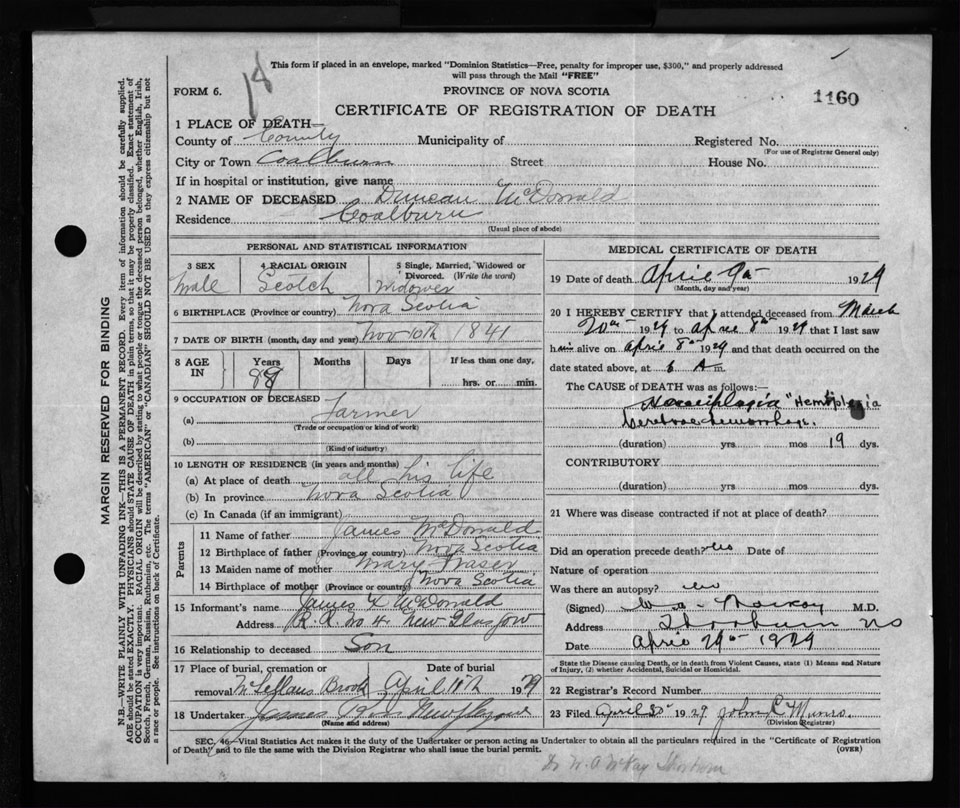 18
This form if placed in an envelope, marked "Dominion Statistics—Free, penalty for improper use, $300," and properly addressed
will pass through the Mail "FREE"
FORM 6.
PROVINCE OF NOVA SCOTIA
1160
CERTIFICATE OF REGISTRATION OF DEATH
1 PLACE OF DEATH—
County of County Municipality of Registered No.
(For use of Registrar General only)
City or Town Coalburn Street House No.
If in hospital or institution, give name
2 NAME OF DECEASED Duncan McDonald
Residence Coalburn
(Usual place of abode)
PERSONAL AND STATISTICAL INFORMATION
3 SEX 4 RACIAL ORIGIN 5 Single, Married, Widowed or
Divorced. (Write the word)
Male Scotch Widower
6 BIRTHPLACE (Province or country) Nova Scotia
7 DATE OF BIRTH (month, day and year) Nov 10th 1841
8 AGE IN Years Months Days If less than one day,
88 hrs. or min.
9 OCCUPATION OF DECEASED
(a) Farmer
(Trade or occupation or kind of work)
(b)
(Kind of industry)
10 LENGTH OF RESIDENCE (in years and months)
(a) At place of death all his life
(b) In province Nova Scotia
(c) In Canada (if an immigrant)
Parents
11 Name of father James McDonald
12 Birthplace of father (Province or country) Nova Scotia
13 Maiden name of mother Mary Fraser
14 Birthplace of mother (Province or country) Nova Scotia
15 Informant's name James McDonald
Address R.R. No 4. New Glasgow
16 Relationship to deceased Son
17 Place of burial, cremation or Date of burial
removal McLellans Brook April 11th 1929
18 Undertaker James New Glasgow
(Name and address)
MEDICAL CERTIFICATE OF DEATH
19 Date of death April 9th 1929
(Month, day and year)
20 I HEREBY CERTIFY that I attended deceased from March
20th 1929 to April 8th 1929 that I last saw
him alive on April 8th 1929 and that death occurred on the
date stated above, at 6 A m.
The CAUSE OF DEATH was as follows:—
"Hemiplegia
(duration) yrs. mos 19 dys.
CONTRIBUTORY
(duration) yrs. mos. dys.
21 Where was disease contracted if not at place of death?
Did an operation precede death? No Date of
Nature of operation
Was there an autopsy? No
(Signed) W. A. MacKay M.D.
Address Thorburn NS
Date April 29th 1929
State the Disease causing Death, or in death from Violent Causes, state (1) Means and Nature
of Injury, (2) whether Accidental, Suicidal or Homicidal.
22 Registrar's Record Number
23 Filed April 30th 1929 John R Munro.
(Division Registrar)
SEC. 46—Vital Statistics Act makes it the duty of the Undertaker or person acting as Undertaker to obtain all the particulars required in the "Certificate of Registration
of Death" and to file the same with the Division Registrar who shall issue the burial permit. (OVER)
Dr W. A McKay Thorburn
MARGIN RESERVED FOR BINDING
N.B.—WRITE PLAINLY WITH UNFADING INK—THIS IS A PERMANENT RECORD. Every item of information should be carefully supplied.
AGE should be stated EXACTLY. PHYSICIANS should STATE CAUSE OF DEATH in plain terms, so that it may be properly classified. Exact statement of
OCCUPATION is very important. RACIAL ORIGIN will be described by stating to what people or tongue the deceased person belonged, whether English, Irish,
Scotch, French, German, Russian, Ruthenian, etc. The terms "AMERICAN" or "CANADIAN" SHOULD NOT BE USED as they express citizenship but not
a race or people. See instructions on back of Certificate.